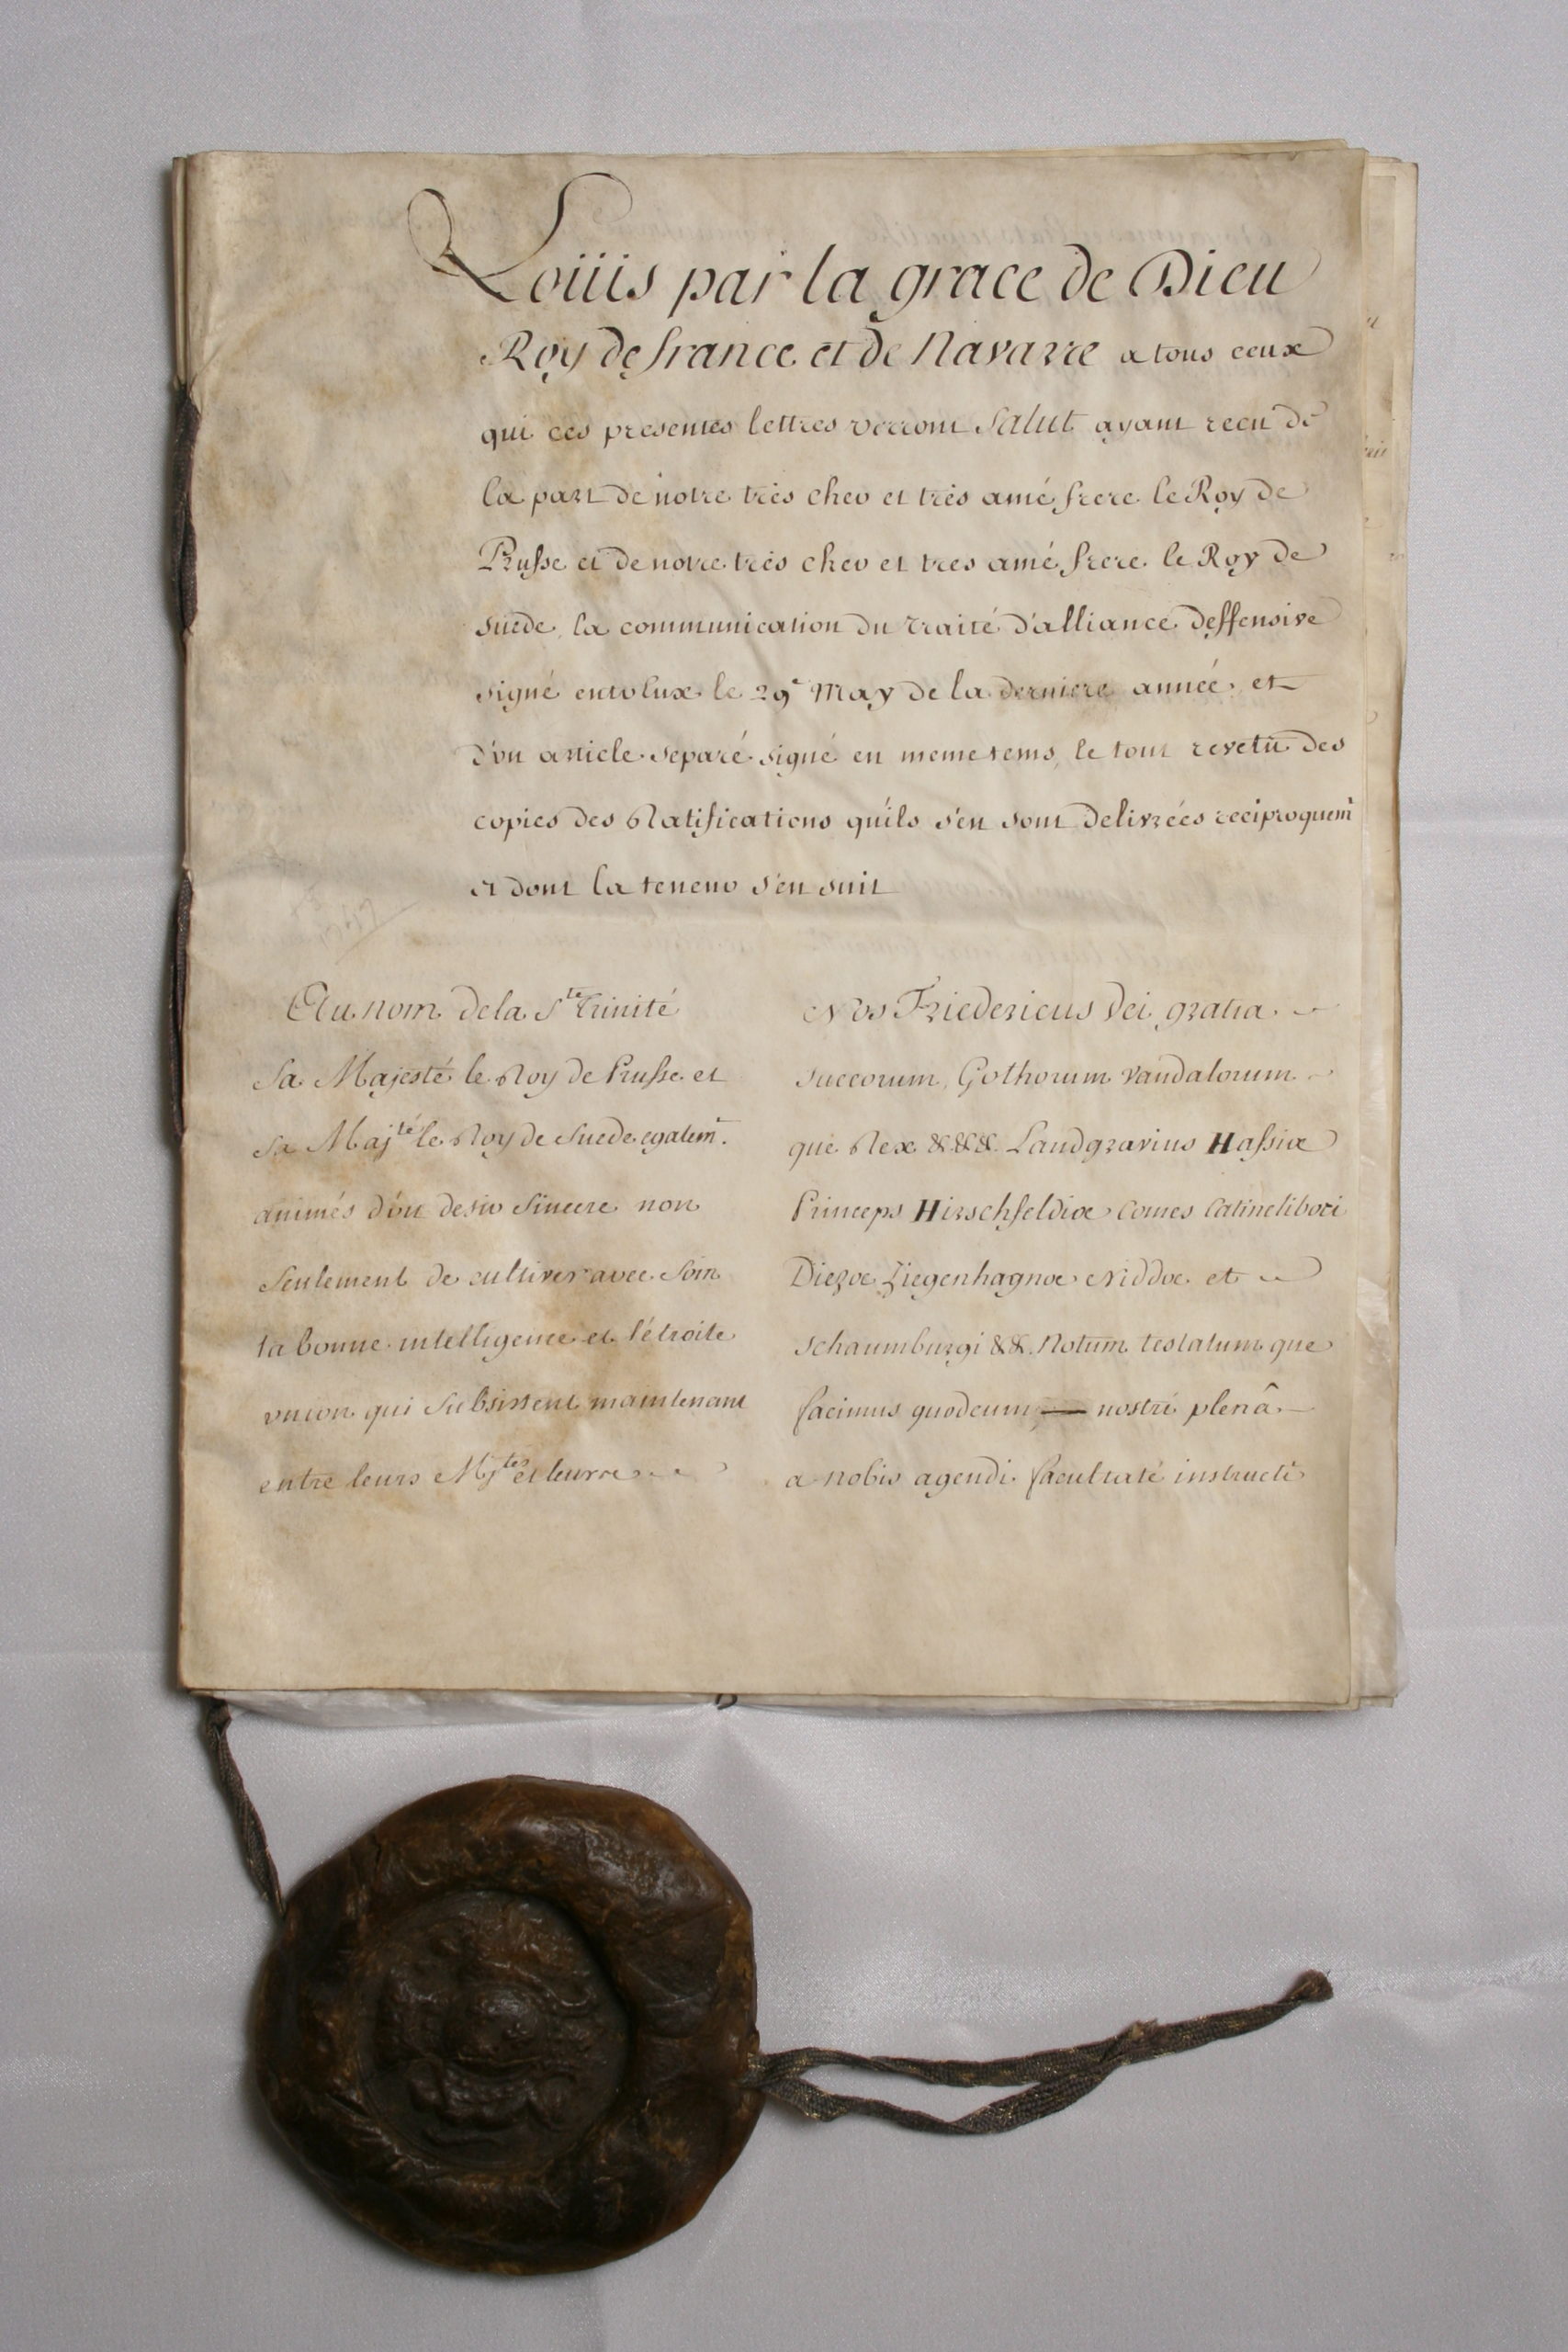 Loüis par la grace de Dieu
Roy de france et de Navarre a tous ceux
qui ces presentes lettres verront Salut ayant recu de
la part de notre trés cher et trés amé frere le Roy de
Prusse et de notre trés cher et tres amé frere le Roy de
Suede la communication du traité d'alliance deffensive
signé entr'eux le 29e May de la derniere année, et
d'un article separé signé en meme tems, le tout revetu des
copies des Ratifications qu'ils s'en sont delivrées reciproquemt
et dont la teneur s'en suit
Au nom de la Ste Trinité
Sa Majesté le Roy de Prusse et
Sa Majté le Roy de Suede egalemt.
animés d'un desir Sincere non
Seulement de cultiver avec Soin
la bonne intelligence et l'étroite
union qui Subsistent maintenant
entre leurs Mjtés et leurs
Nos Friedericus Dei gratia
Succorum, Gothorum Vandalorum
que Rex &&& Landgravius Hassiæ
Princeps Hirschfeldiæ Comes Catineliboci
Diezæ Ziegenhagnæ Niddæ et
Schaumburgi && Notum testatum que
facimus quodcum, — nostri plenâ
a nobis agendi facultate instructi